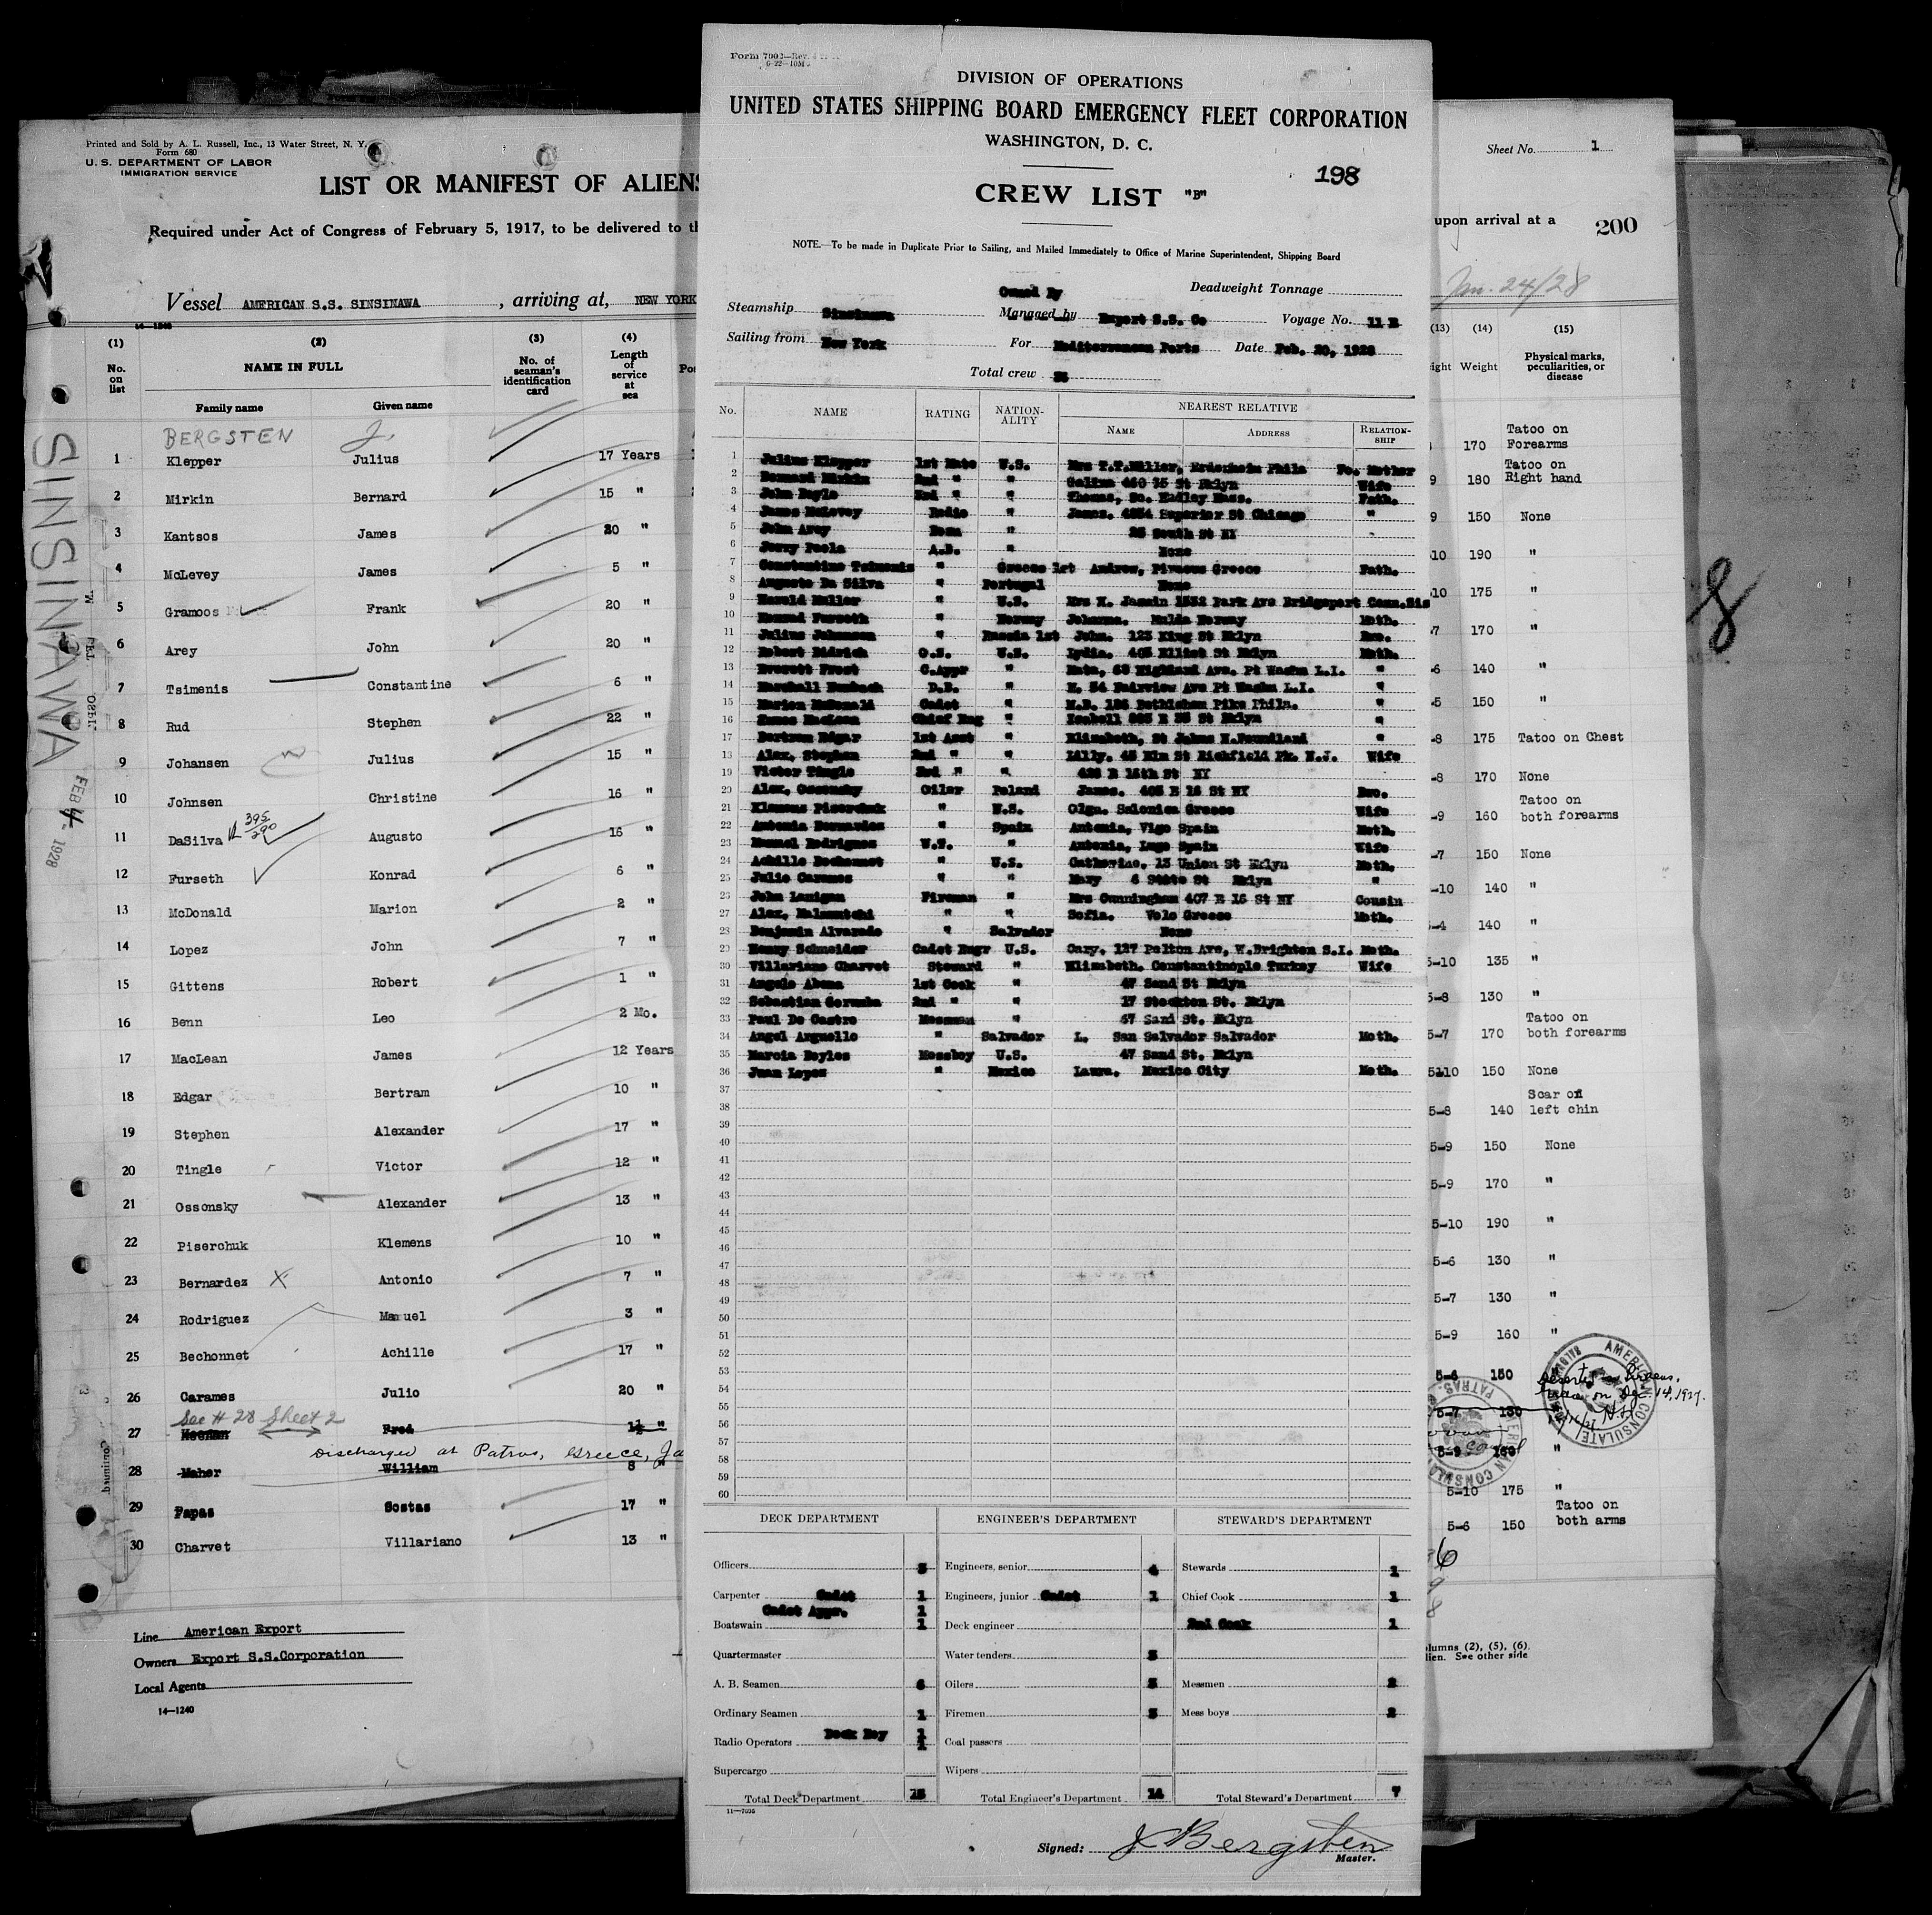 Printed and Sold by A. L. Russell, Inc., 13 Water Street, N. Y.
Form 680
U. S. DEPARTMENT OF LABOR
IMMIGRATION SERVICE
LIST OR MANIFEST OF ALIENS
Required under Act of Congress of February 5, 1917, to be delivered to th
Vessel AMERICAN S.S. SINSINAWA, arriving at, NEW YORK
(1) (2) (3) (4)
No. on list NAME IN FULL No. of seaman's identification card Length of service at sea
Family name Given name
BERGSTEN J.
1 Klepper Julius 17 Years
2 Mirkin Bernard 15 "
3 Kantsos James 20 "
4 McLevey James 5 "
5 Gramoos Frank 20 "
6 Arey John 20 "
7 Tsimenis Constantine 6 "
8 Rud Stephen 22 "
9 Johansen Julius 15 "
10 Johnsen Christine 16 "
11 DaSilva 395/290 Augusto 16 "
12 Furseth Konrad 6 "
13 McDonald Marion 2 "
14 Lopez John 7 "
15 Gittens Robert 1 "
16 Benn Leo 2 Mo.
17 MacLean James 12 Years
18 Edgar Bertram 10 "
19 Stephen Alexander 17 "
20 Tingle Victor 12 "
21 Ossonsky Alexander 13 "
22 Piserchuk Klemens 10 "
23 Bernardez X Antonio 7 "
24 Rodriguez Manuel 3 "
25 Bechonnet Achille 17 "
26 Carames Julio 20 "
See # 28 Sheet 2
27 Keenan Fred 1½ "
Discharged at Patras, Greece, Ja
28 Maher William 8 "
29 Papas Sostas 17 "
30 Charvet Villariano 13 "
Line American Export
Owners Export S.S.Corporation
Local Agents
14—1240
SINSINAWA
FEB 4 - 1928
Form 7002—Rev.
6-22-10M
DIVISION OF OPERATIONS
UNITED STATES SHIPPING BOARD EMERGENCY FLEET CORPORATION
WASHINGTON, D. C.
198
CREW LIST "B"
NOTE.—To be made in Duplicate Prior to Sailing, and Mailed Immediately to Office of Marine Superintendent, Shipping Board
Owned By Deadweight Tonnage
Steamship Sinsinawa Managed by Export S.S. Co Voyage No. 11 B
Sailing from New York For Mediterranean Ports Date Feb. 20, 1928
Total crew
No. NAME RATING NATIONALITY NEAREST RELATIVE
NAME ADDRESS RELATIONSHIP
1 Julius Klepper 1st Mate U.S. Mrs T.T.Miller, Erdenheim Phila Pa. Mother
2 Bernard Mirkin 2nd " " Galina 460 35 St Bklyn Wife
3 John Doyle 3rd " " Thomas, So. Hadley Mass. Fath.
4 James McLevey Radio " James. 4854 Superior St Chicago "
5 John Arey Bosn " 25 South St NY
6 Jerry Paola A.B. " None
7 Constantine Tsimenis " Greece 1st Andrew, Piraeus Greece Fath.
8 Augusto Da Silva " Portugal None
9 Harold Muller " U.S. Mrs H. Jassin 1532 Park Ave Bridgeport Conn.Sis
10 Konrad Furseth " Norway Johanna. Molde Norway Moth.
11 Julius Johansen " Russia 1st John. 123 King St Bklyn Bro.
12 Robert Didrich O.S. U.S. Lydia. 405 Elliot St Bklyn Moth.
13 Everett Frost C.Appr " Meta, 68 Highland Ave. Pt Washn L.I. "
14 Marshall D.B. " H. 54 Fairview Ave Pt Washn L.I. "
15 Marion McDonald Cadet " M.B. 186 Bethlehem Pike Phila. "
16 James MacLean Chief Eng " Isabell 825 E 35 St Bklyn "
17 Bertram Edgar 1st Asst " Elizabeth, St Johns N.Foundland "
18 Alex. Stephen 2nd " " Lilly. 45 Elm St Richfield Pk. N.J. Wife
19 Victor Tingle 3rd " " 428 E 15th St NY
20 Alex. Ossonsky Oiler Poland James. 405 E 16 St NY Bro.
21 Klemens Piserchuk " U.S. Olga. Salonica Greece Wife
22 Antonio Bernardez " Spain Antonia, Vigo Spain Moth.
23 Manuel Rodriguez W.T. " Antonia, Lugo Spain Wife
24 Achille Bechonnet " U.S. Catherine, 13 Union St Bklyn Moth.
25 Julio Carames " " Mary 6 State St Bklyn "
26 John Lanigan Fireman " Mrs Cunningham 407 E 16 St NY Cousin
27 Alex. Malamutchi " " Sofia. Volo Greece Moth.
28 Benjamin Alvarado " Salvador None
29 Henry Schneider Cadet Engr U.S. Cary. 127 Pelton Ave, W.Brighton S.I. Moth.
30 Villariano Charvet Steward " Elizabeth. Constantinople Turkey Wife
31 Angelo Abena 1st Cook " 47 Sand St Bklyn
32 Sebastian Gerumba 2nd " " 17 Stockton St. Bklyn
33 Paul De Castro Messman " 47 Sand St. Bklyn
34 Angel Arguello " Salvador L. San Salvador Salvador Moth.
35 Marcia Boyles Messboy U.S. 47 Sand St. Bklyn
36 Juan Lopez " Mexico Laura. Mexico City Moth.
37
38
39
40
41
42
43
44
45
46
47
48
49
50
51
52
53
54
55
56
57
58
59
60
DECK DEPARTMENT ENGINEER'S DEPARTMENT STEWARD'S DEPARTMENT
Officers 3 Engineers, senior 4 Stewards 1
Carpenter Cadet 1 Engineers, junior Cadet 1 Chief Cook 1
Cadet Appr. 1
Boatswain 1 Deck engineer 2nd Cook 1
Quartermaster Water tenders 3
A. B. Seamen 6 Oilers 3 Messmen 2
Ordinary Seamen 1 Firemen 3 Mess boys 2
Deck Boy 1
Radio Operators 1 Coal passers
Supercargo Wipers
Total Deck Department 15 Total Engineer's Department 14 Total Steward's Department 7
11—7035
Signed: J Bergsten
Master.
Sheet No. 1
upon arrival at a 200
Jan. 24/28
(13) (14) (15)
ight Weight Physical marks, peculiarities, or disease
170 Tatoo on Forearms
9 180 Tatoo on Right hand
9 150 None
10 190 "
10 175 "
7 170 "
6 140 "
5 150 "
-8 175 Tatoo on Chest
-8 170 None
-9 160 Tatoo on both forearms
-7 150 None
-10 140 "
-4 140 "
5-10 135 "
5-8 130 "
5-7 170 Tatoo on both forearms
5-10 150 None
5-8 140 Scar on left chin
5-9 150 None
5-9 170 "
5-10 190 "
5-6 130 "
5-7 130 "
5-9 160 "
5-6 150
Deserted at Piraeus, Greece on Dec. 14, 1927.
5-7 130
5-9 160 "
5-10 175 "
5-6 150 Tatoo on both arms
AMERICAN CONSULATE
PATRAS
6
9
8
lumns (2), (5), (6)
lien. See other side
8